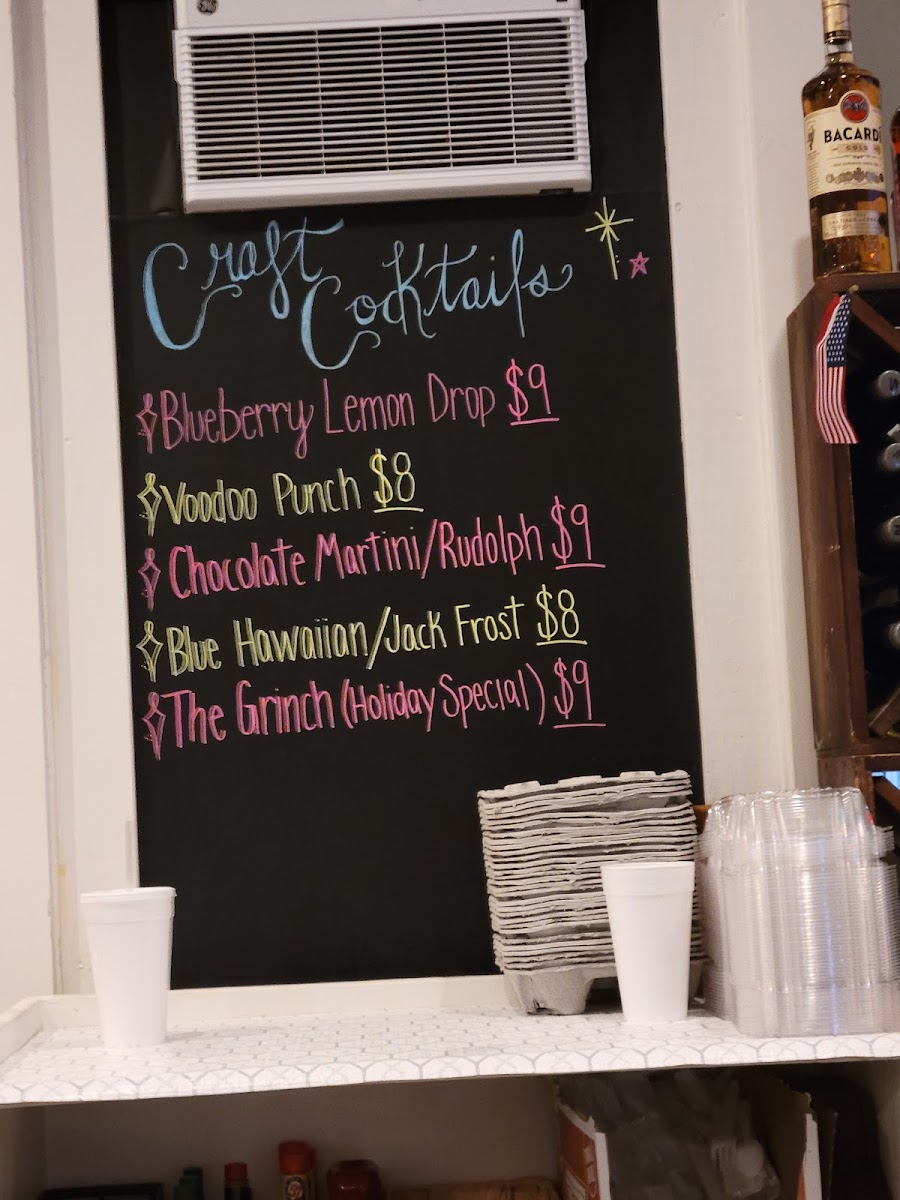 Craft Cocktails
Blueberry Lemon Drop $9
Voodoo Punch $8
Chocolate Martini/Rudolph $9
Blue Hawaiian/Jack Frost $8
The Grinch (Holiday Special) $9
BACARDI
GOLD